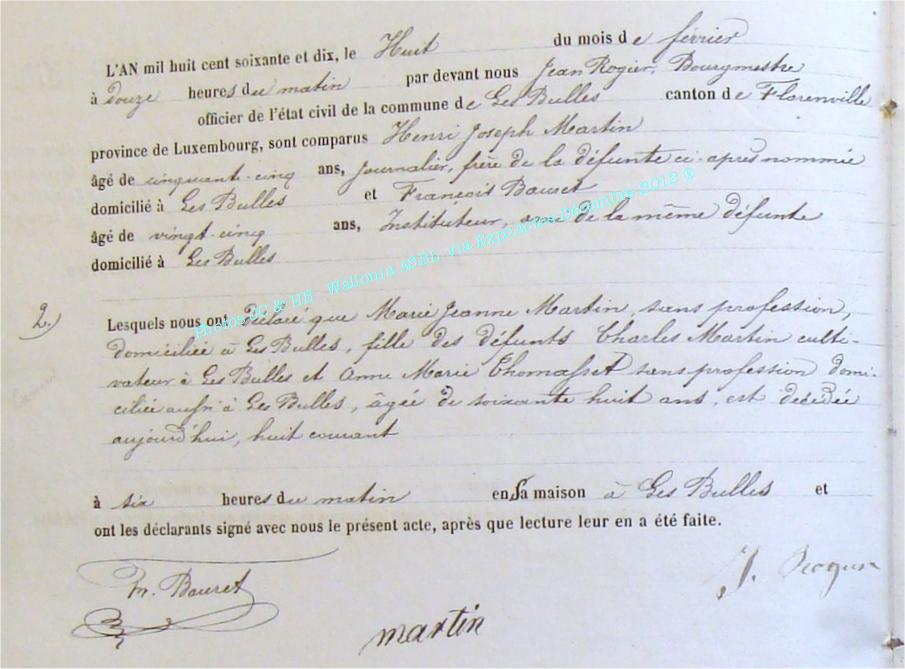 L'AN mil huit cent soixante et dix, le Huit du mois de février
à douze heures du matin par devant nous Jean Rogier, Bourgmestre
officier de l'état civil de la commune de Les Bulles canton de Florenville
province de Luxembourg, sont comparus Henri Joseph Martin
âgé de cinquant-cinq ans, Journalier, frère de la défunte ci-après nommée
domicilié à Les Bulles et François Bauret
âgé de vingt-cinq ans, Instituteur, de la même défunte
domicilié à Les Bulles
Photos OC & HB - Wallonia ASBL via Expo-Actes Décembre 2012 ®
2.)
Lesquels nous ont déclaré que Marie Jeanne Martin, sans profession,
domiciliée à Les Bulles, fille des défunts Charles Martin culti-
vateur à Les Bulles et Anne Marie Thomasset sans profession domi-
ciliée aussi à Les Bulles, âgée de soixante huit ans, est décédée
aujourd'hui, huit courant
à six heures du matin en sa maison à Les Bulles et
ont les déclarants signé avec nous le présent acte, après que lecture leur en a été faite.
Bauret
J.
martin